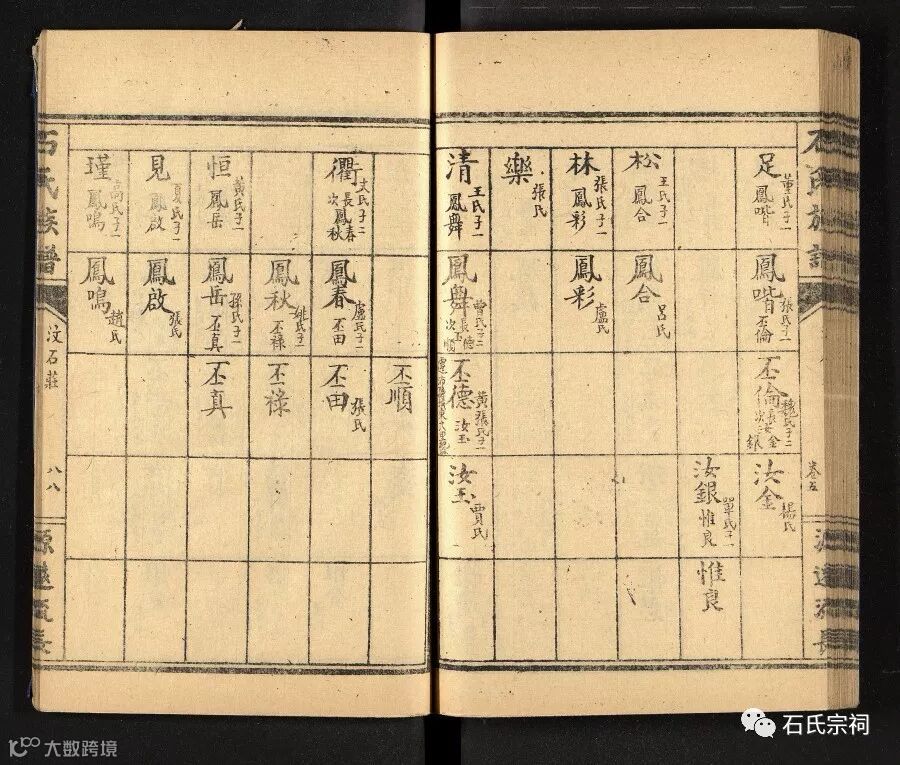 石氏族譜
卷五
源遠流長
足 董氏子一 鳳喈
鳳喈 張氏子一 丕倫
丕倫 魏氏子二 長汝金 次汝銀
汝金 楊氏
汝銀 單氏子一 惟良
惟良
松 王氏子一 鳳合
鳳合 呂氏
林 張氏子一 鳳彩
鳳彩 盧氏
樂 張氏
清 王氏子一 鳳舞
鳳舞 曹氏子二 長丕德 次丕順
丕德 黃張氏子一 汝玉
汝玉 賈氏
丕順
衢 丈氏子二 長鳳春 次鳳秋
鳳春 盧氏子一 丕田
丕田 張氏
鳳秋 姚氏子一 丕祿
丕祿
恒 黃氏子一 鳳岳
鳳岳 孫氏子一 丕真
丕真
見 夏氏子一 鳳啟
鳳啟 張氏
瑾 高氏子一 鳳鳴
鳳鳴 趙氏
石氏族譜
汶石莊
八八
源遠流長
石氏宗祠
大数跨境